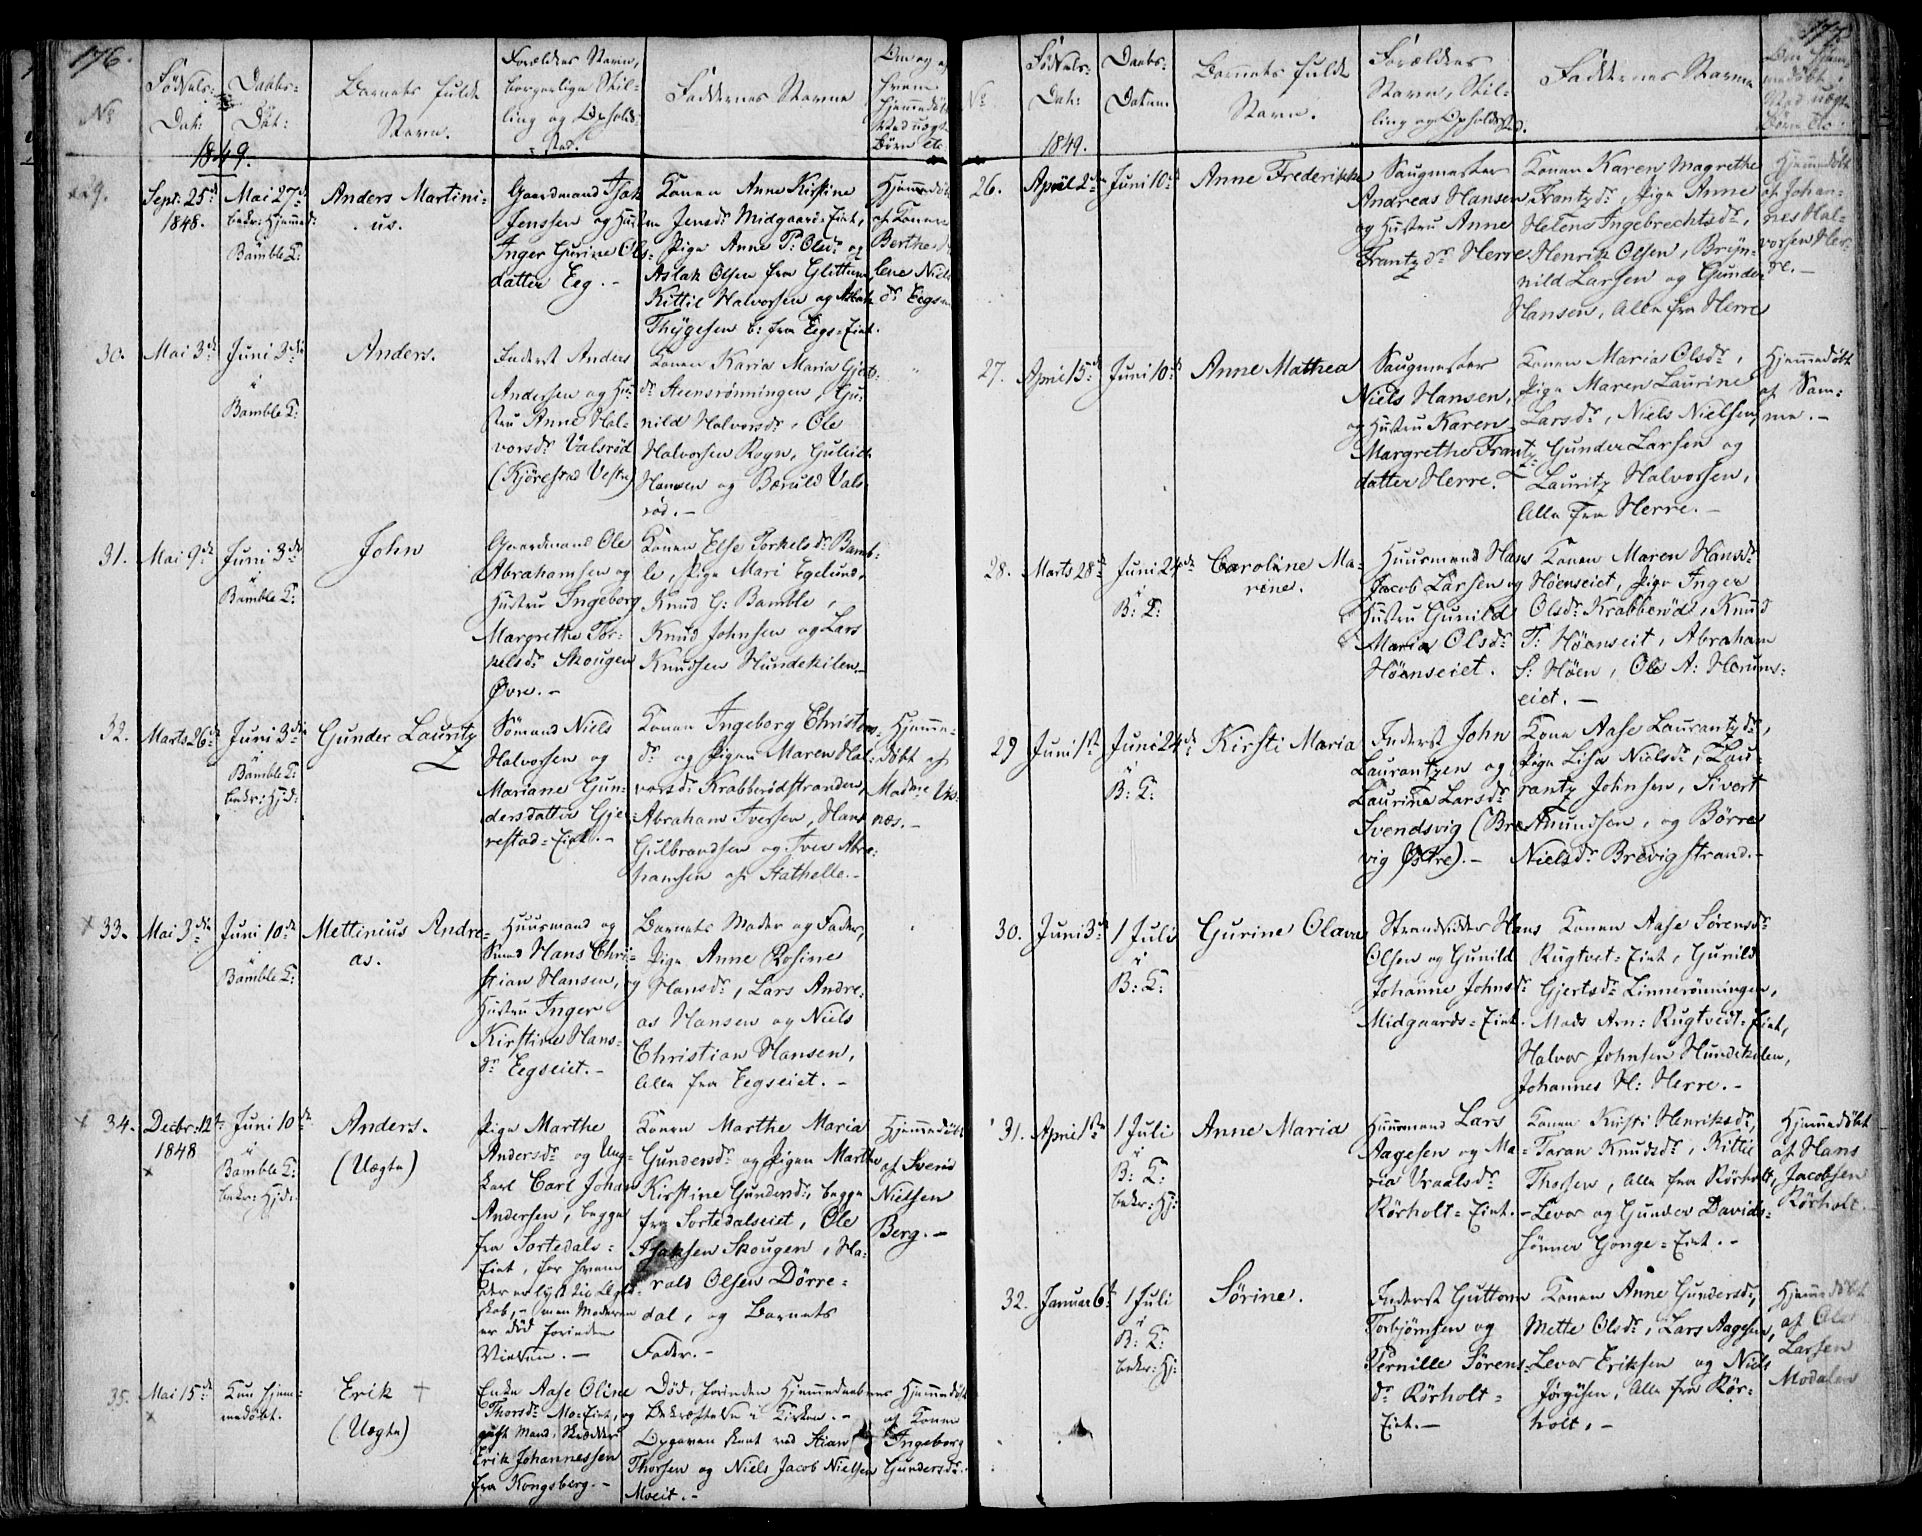 176.
No
Fødsels-
Dat:
Daabs-
Dat:
Barnets fulde
Navn.
Forældres Navn,
borgerlige Stil-
ling og Opholds-
sted.
Faddernes Navne
Om og af
hvem
hjemmedøbt
1849.
29.
Sept: 25de
1848.
Mai 27de
bekr: Hjemmed:
Bamble K:
Anders Martini-
us.
Gaardmand Isak
Jenssen og Hustru
Inger Gurine Ols-
datter Eeg. -
Konen Anne Kirstine
Jensdr Midgaard-Eiet,
Pige Anne P: Olsdr og
Aslak Olsen fra Glittum,
Kittil Halvorsen og Aslak
Thygesen b: fra Eegs-Eiet.
Hjemmedøbt
af Konen
Berthe
lene Niels
dr Eegs
30.
Mai 3de
Juni 3de
i
Bamble K:
Anders.
Inderst Anders
Andersen og Hu-
stru Anne Hal-
vorsdr Valsrød
(Kjørestad Vestre)
Konen Karia Maria Gjert-
dr Steensrønningen, Gu-
nild Halvorsdr, Ole
Halvorsen Rogn,
Hansen og Bæruld Vals-
rød. -
31.
Mai 9de
Juni 3de
i
Bamble K:
John
Gaardmand Ole
Abrahamsen og
Hustru Ingeborg
Margrethe Tor-
kelsdr Skougen
Øvre. -
Konen Else Torkelsdr Bamb-
le, Pige Mari Egelund,
Knud G: Bamble,
Knud Johnsen og Lars
Knudsen Hundekilen. -
32.
Marts 26de
Juni 3de
i
Bamble K:
bekr: Hjd:
Gunder Lauritz
Sømand Niels
Halvorsen og
Mariane Gun-
dersdatter Gje-
restad-Eiet. -
Konen Ingeborg Christen-
dr og Pigen Maren Hal-
vorsdr Krabberødstranden,
Abraham Iversen, Hans
Gulbrandsen og Iver Abra-
hamsen af Stathelle. -
Hjemme-
døbt af
Madme
næs. -
33.
Mai 3de
Juni 10de
i
Bamble K:
Mettinius Andre-
as.
Huusmand og
Smed Hans Chri-
stian Hansen, og
Hustru Inger
Kirstine Hans-
dr Eegseiet. -
Barnets Moder og Fader,
Pige Anne Rosine
Hansdr, Lars Andre-
as Hansen og Niels
Christian Hansen,
Alle fra Eegseiet. -
34.
Decbr: 12te
1848
Juni 10de
i
Bamble K:
bekr: Hjd:
Anders.
(Uægte)
Pige Marthe
Andersdr og Ung-
karl Carl Johan
Andersen, begge
fra Sortedals-
Eiet, for hvem
der er lyst til Ægte-
skab, - men Moderen
er død forinden
Vielsen. -
Konen Marthe Maria
Gundersdr og Pigen Marthe
Kirstine Gundersdr, begge
fra Sortedalseiet, Ole
Isaksen Skougen, Ha-
rald Olsen Dørre-
dal, og Barnets
Fader. -
Hjemmedøbt
af Svend
Nielsen
Berg. -
35.
Mai 15de
Kun hjem-
medøbt.
Erik +
(Uægte)
Enke Aase Oline
Thorsdr Mo-Eiet, og
gift Mand, Skrædder
Erik Johannessen
fra Kongsberg. -
Død, forinden Hjemmedaabens
Bekræftelse i Kirken. -
Opgaven skeet ved Stian
Thorsen og Niels Jacob Nielsen
Moeiet. -
Hjemmedøbt
af Konen
Ingeborg
Gundersdr.
177
No
Fødsels-
Dat:
Daabs-
Datum.
Barnets fulde
Navn.
Forældres
Navn, Stil-
ling og Opholdssted.
Faddernes Navne
1849.
26.
April 2den
Juni 10de
Anne Frederikke
Saugmester
Andreas Hansen
og Hustru Anne
Frantzdr Herre
Konen Karen Magrethe
Frantzdr, Pige Anne
Helene Ingebrechtsdr,
Henrik Olsen, Bryn-
nild Larsen og Gunder
Hansen, Alle fra Herre
Hjemmedøbt
af Johan-
nes Hal-
vorsen Her-
re. -
27.
April 15de
Juni 10de
Anne Mathea
Saugmester
Niels Hansen,
og Hustru Karen
Margrethe Frantz-
datter Herre.
Konen Maria Olsdr,
Pige Maren Laurine
Larsdr, Niels Nielsen,
Gunder Larsen og
Lauritz Halvorsen,
Alle fra Herre. -
Hjemmedøbt
af Sam-
me. -
28.
Marts 28de
Juni 24de
i
B: K:
Caroline Ma-
rine.
Huusmand Hans
Jacob Larsen og
Hustru Gunild
Maria Olsdr
Høenseiet.
Konen Maren Hansdr
Høenseiet, Pige Inger
Olsdr Krabberød, Knud
T: Høenseiet, Abraham
S: Høen, Ole A:
eiet. -
29
Juni 1ste
Juni 24de
i
B: K:
Kirsti Maria
Inderst John
Laurantzen og
Laurine Larsdr
Svendsvig (Bre-
vig Østre). -
Kone Aase Laurantzdr,
Pige Lisa Nielsdr, Lau-
rantz Johnsen, Sivert
Amundsen, og Børre
Nielsdr Brevigstrand. -
30.
Juni 3de
1 Juli
i
B: K:
Gurine Olava
Strandsidder Hans
Olsen og Gunild
Johanne Johnsdr
Midgaards-Eiet.
Konen Aase Sørensdr
Rugtvet-Eiet, Gunild
Gjertsdr Linnerønningen,
Mads Arn: Rugtvedt-Eiet,
Halvor Johnsen Hundekilen,
Johannes H: Herre. -
31.
April 1ste
1 Juli
i
B: K:
bekr: Hj:
Anne Maria
Huusmand Lars
Aagesen og Ma-
ria Vraalsdr
Rørholt-Eiet. -
Konen Kirsti Henriksdr,
Taran Knudsdr, Kittil
Thorsen, Alle fra Rørholt,
Levor og Gunder Davids-
sønner Gonge-Eiet. -
Hjemmedøbt
af Hans
Jacobsen
Rørholt.
32.
Januar 6te
1 Juli
i
B: K:
bekr: Hj:
Sørine.
Inderst Guttorm
Torbjørnsen og
Pernille Sørens-
dr Rørholt-
Eiet. -
Konen Anne Gundersdr,
Mette Olsdr, Lars Aagesen,
Levor Eriksen og Niels
Jørgisen, Alle fra Rør-
holt. -
Hjemmedøbt
af Ole
Larsen
Modalen